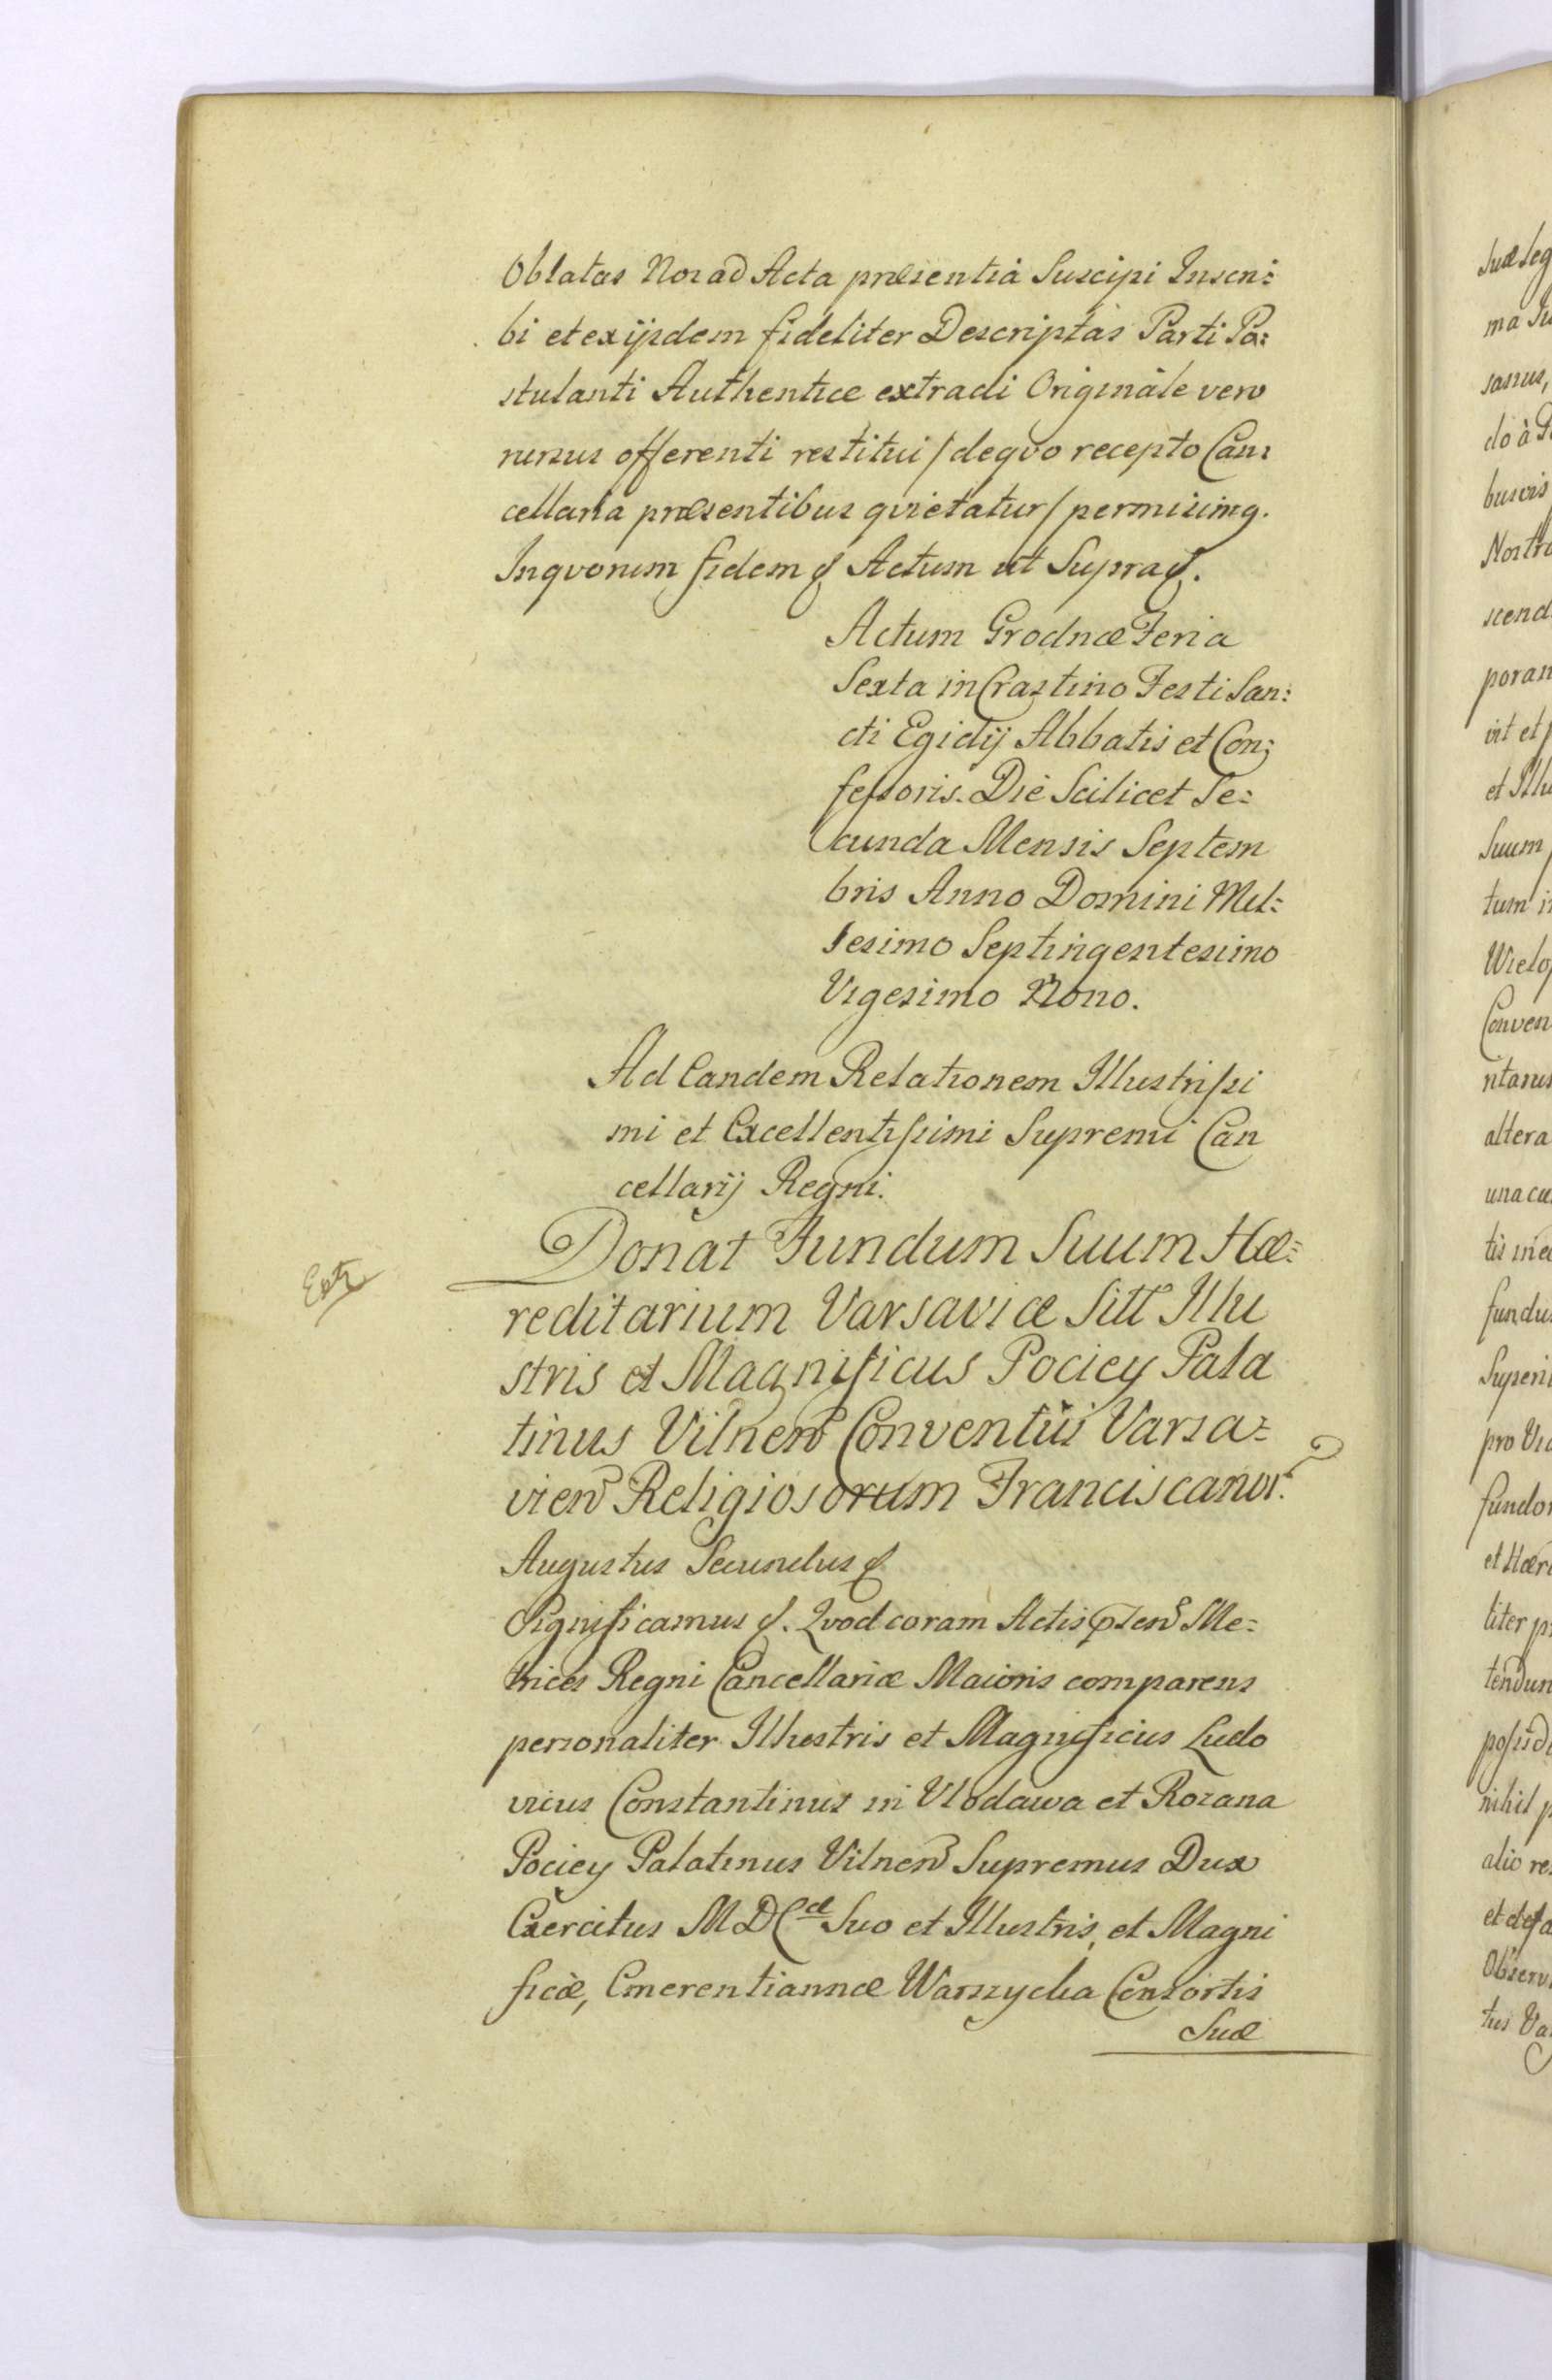 Oblatas Nos ad Acta præsentia Suscipi Inscri:
bi et ex ijsdem fideliter Descriptas Parti Po:
stulanti Authentice extradi Originale vero
rursus offerenti restitui / de qvo recepto Can:
cellaria præsentibus qvietatur / permisimq.
In qvorum fidem & Actum ut Supra &.
Actum Grodnæ Feria
Sexta in Crastino Festi San:
cti Egidij Abbatis et Con:
feſsoris. Die Scilicet Se:
cunda Mensis Septem
bris Anno Domini Mil:
lesimo Septingentesimo
Vigesimo Nono.
Ad Eandem Relationem Illustriſsi
mi et Excellentiſsimi Supremi Can
cellarij Regni.
Extr
Donat Fundum Suum Hæ:
reditarium Varsaviæ Sitt Illu
stris et Magnificus Pociey Pala
tinus Vilnen Conventüi Varsa:
vien Religiosorum Franciscanor.
Augustus Secundus &
Significamus &. Qvod coram Actis pñsen Me:
trices Regni Cancellariæ Maioris comparens
personaliter Illustris et Magnificus Ludo
vicus Constantinus in Vlodawa et Rozana
Pociey Palatinus Vilnen Supremus Dux
Exercitus M D L Suo et Illustris, et Magni
ficæ, Emerentiannæ Warszycka Consortis
Suæ
Suæ Leg
ma Iu
sanus,
do à
busvis
Nostr
scend
poran
vit et
et Illu
Suum
tum i
Wielo
Conven
ntarus
altera
una cu
tis in e
fundu
Superi
pro
fundo
et Hære
liter p
tendun
poſsid
nihil p
alio re
et
Observ
tus Va